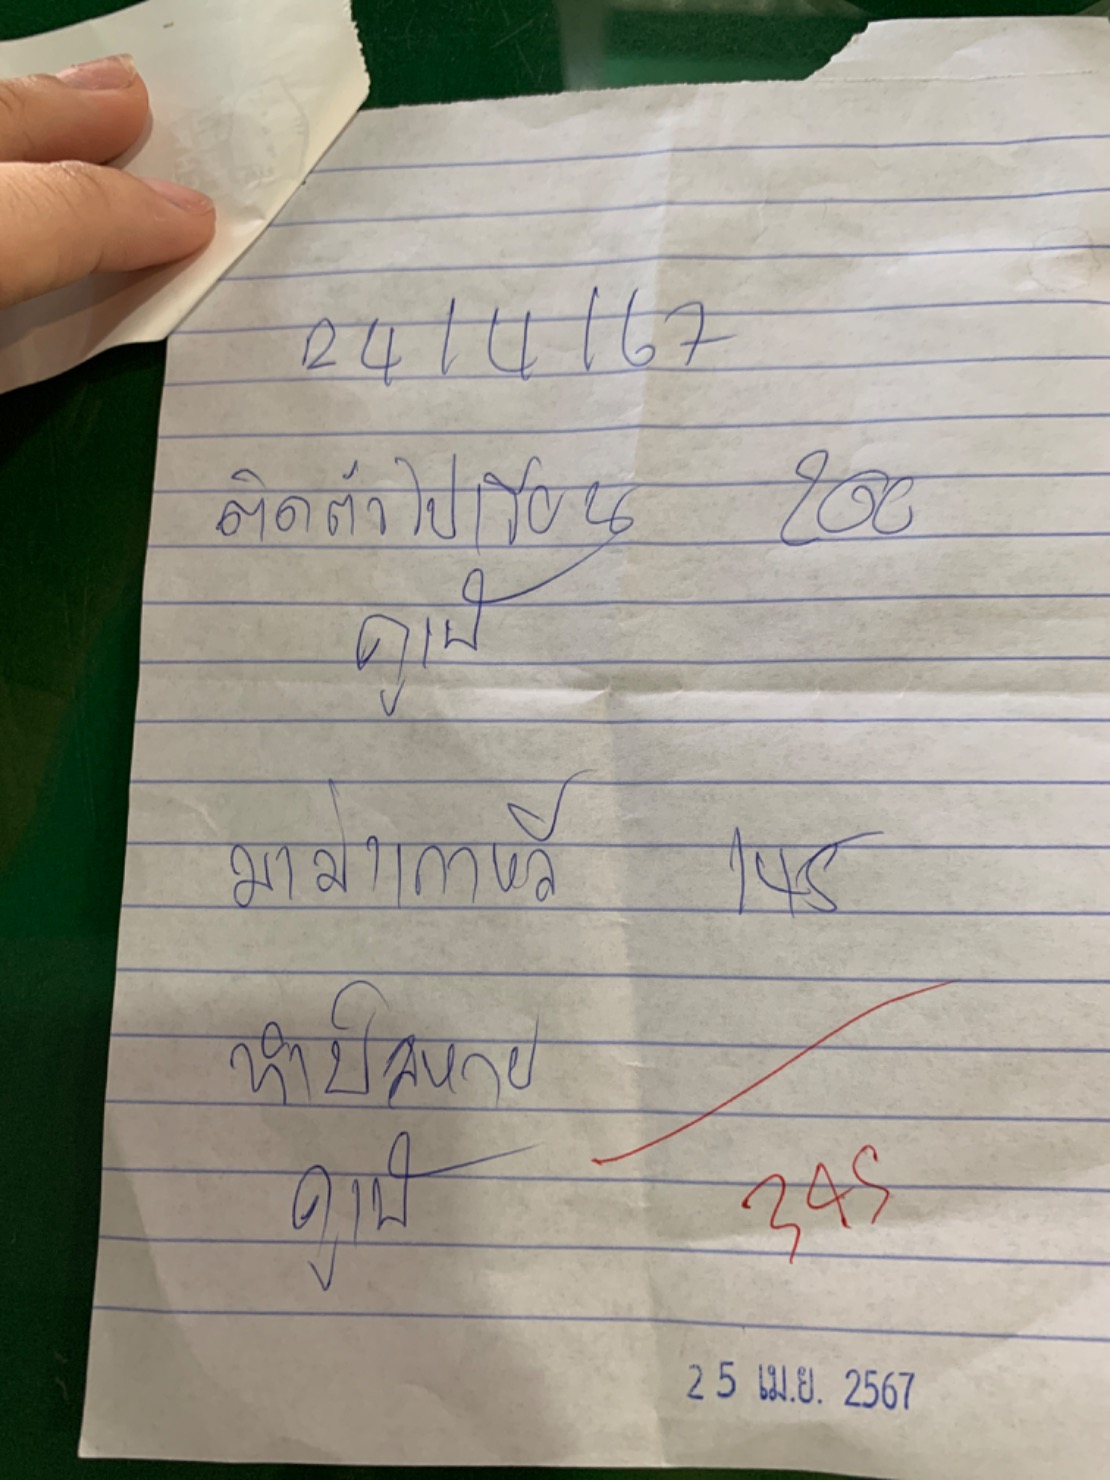 24/4/67
ติดตัวไปเรียน 200
คูเป้
มาม่าเกาหลี 145
ทำปี
คูเป้
345
25 เม.ย. 2567